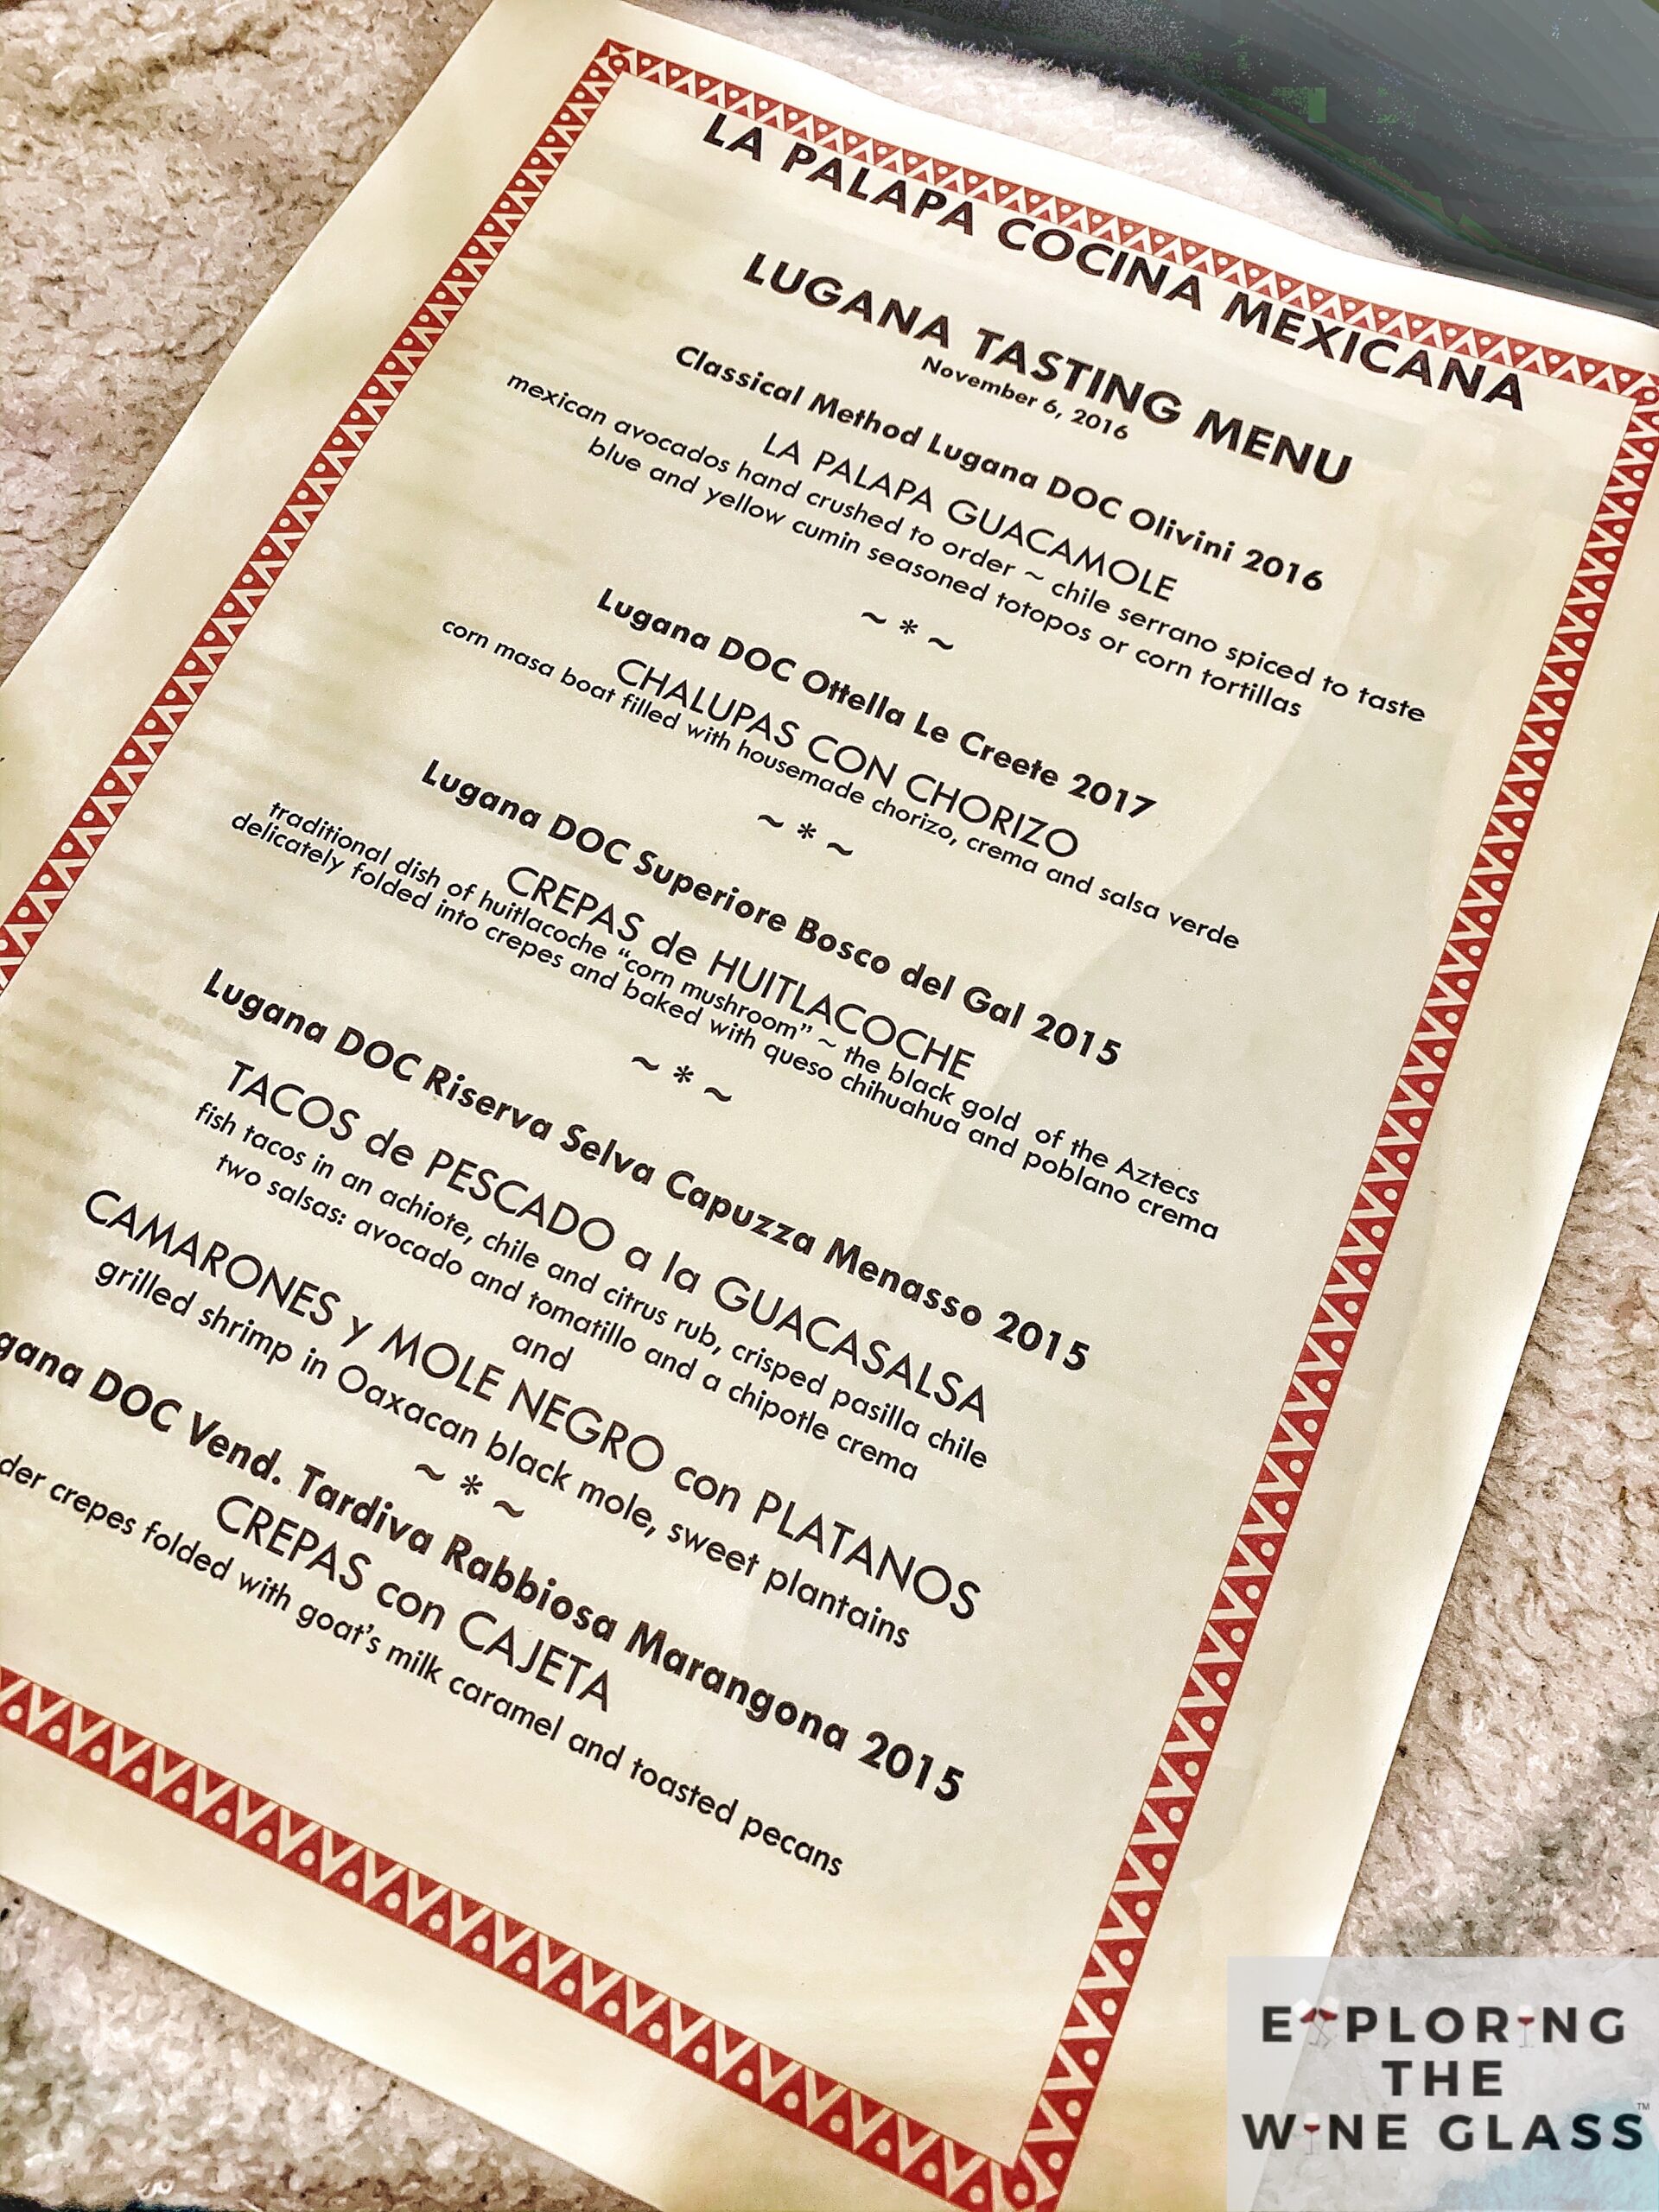 LA PALAPA COCINA MEXICANA
LUGANA TASTING MENU
November 6, 2016
Classical Method Lugana DOC Olivini 2016
LA PALAPA GUACAMOLE
mexican avocados hand crushed to order ~ chile serrano spiced to taste
blue and yellow cumin seasoned totopos or corn tortillas
~ * ~
Lugana DOC Ottella Le Creete 2017
CHALUPAS CON CHORIZO
corn masa boat filled with housemade chorizo, crema and salsa verde
~ * ~
Lugana DOC Superiore Bosco del Gal 2015
CREPAS de HUITLACOCHE
traditional dish of huitlacoche “corn mushroom” ~ the black gold of the Aztecs
delicately folded into crepes and baked with queso chihuahua and poblano crema
~ * ~
Lugana DOC Riserva Selva Capuzza Menasso 2015
TACOS de PESCADO a la GUACASALSA
fish tacos in an achiote, chile and citrus rub, crisped pasilla chile
two salsas: avocado and tomatillo and a chipotle crema
and
CAMARONES y MOLE NEGRO con PLATANOS
grilled shrimp in Oaxacan black mole, sweet plantains
~ * ~
gana DOC Vend. Tardiva Rabbiosa Marangona 2015
CREPAS con CAJETA
der crepes folded with goat’s milk caramel and toasted pecans
EXPLORING
THE
WINE GLASS™